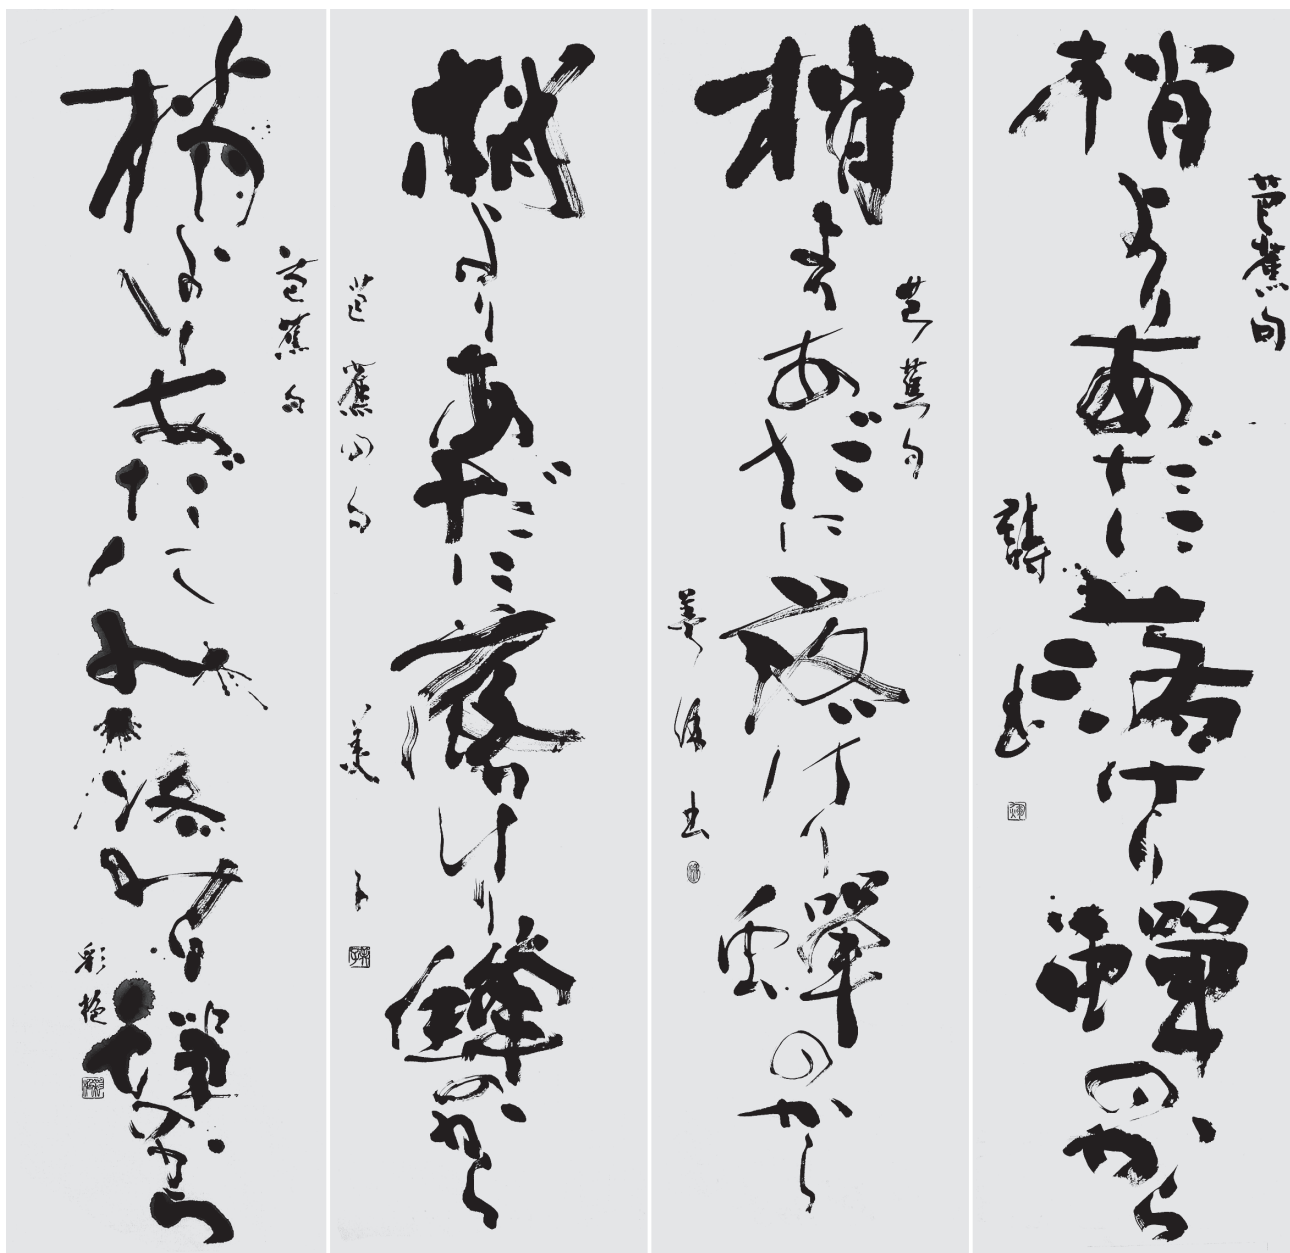 梢よりあだに落けり蟬のから
芭蕉句
梢よりあだに落けり蟬のから
芭蕉句
書
梢よりあだに落けり蟬のから
芭蕉の句
美
梢よりあだにおちけり蟬のから
芭蕉句
彩艶